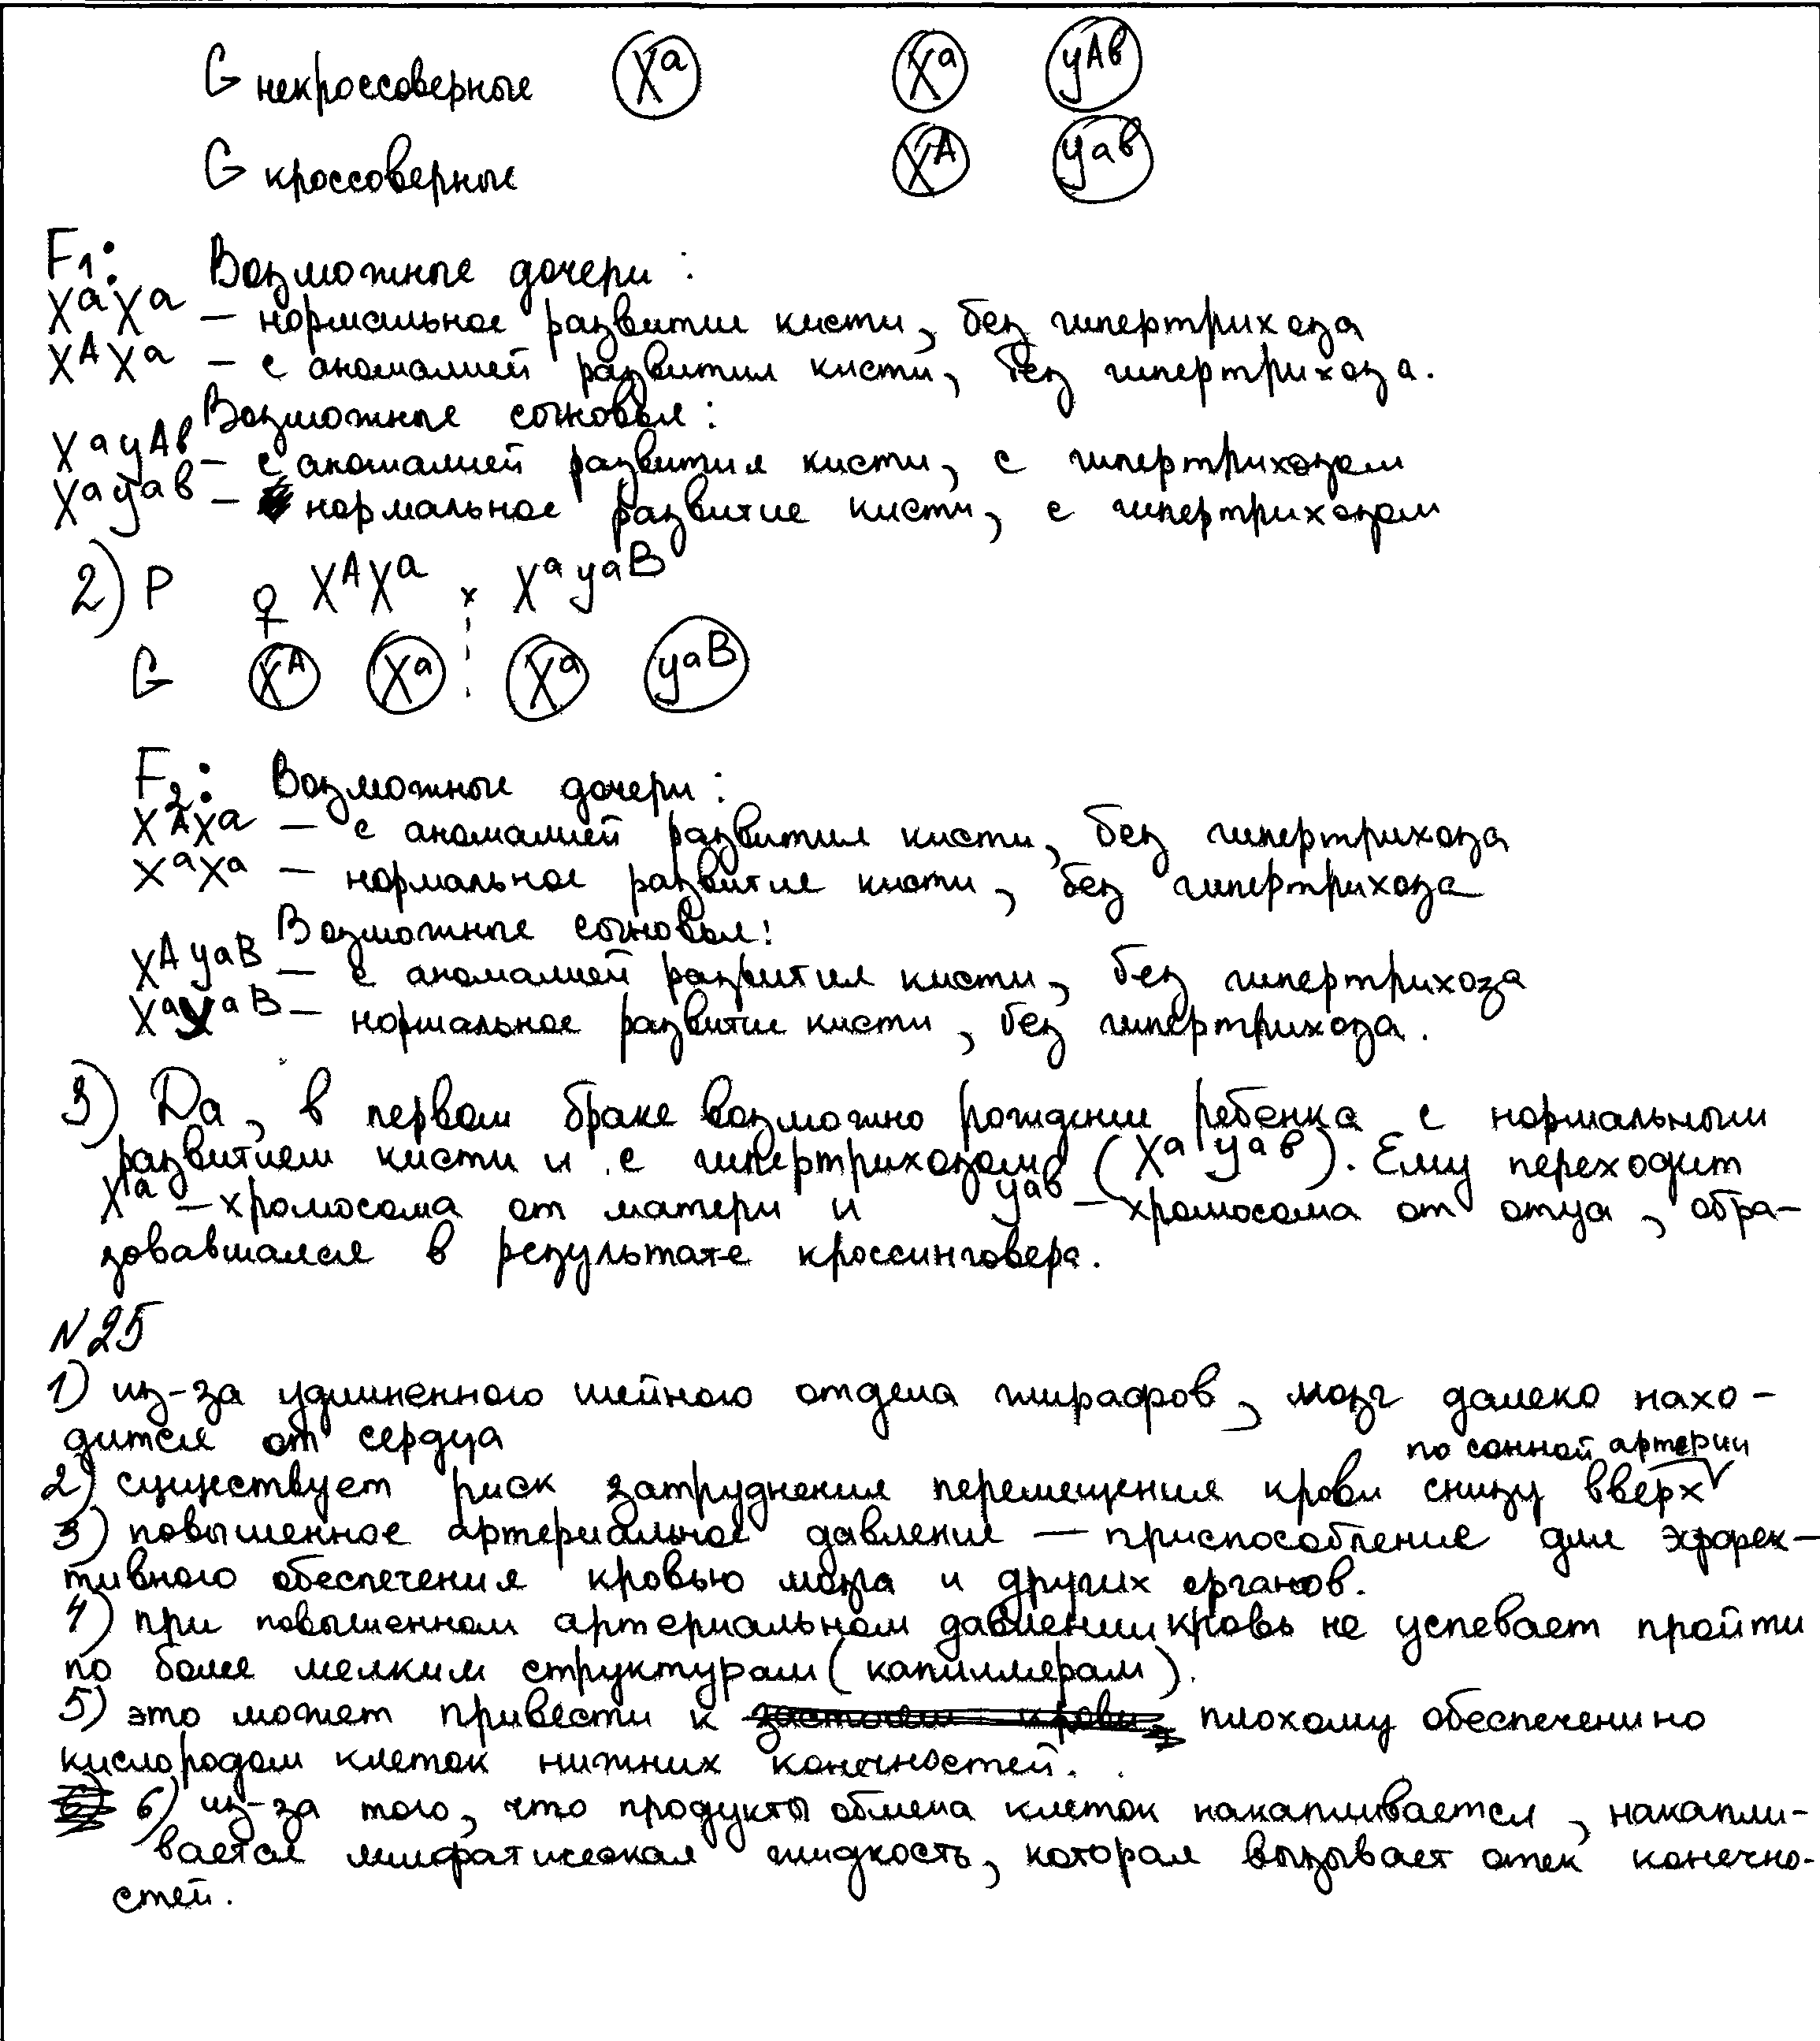 G некроссоверные Xᵃ Xᵃ yᴬᵇ
G кроссоверные Xᴬ yᵃᵇ
F₁: Возможные дочери:
XᵃXᵃ – нормальное развитие кисти, без гипертрихоза
XᴬXᵃ – с аномалией развития кисти, без гипертрихоза.
Возможные сыновья:
Xᵃyᴬᵇ – с аномалией развития кисти, с гипертрихозом
Xᵃyᵃᵇ – нормальное развитие кисти, с гипертрихозом
2) P ♀ XᴬXᵃ × Xᵃyᵃᴮ
G Xᴬ Xᵃ Xᵃ yᵃᴮ
F₂: Возможные дочери:
XᴬXᵃ – с аномалией развития кисти, без гипертрихоза
XᵃXᵃ – нормальное развитие кисти, без гипертрихоза
Возможные сыновья:
Xᴬyᵃᴮ – с аномалией развития кисти, без гипертрихоза
Xᵃyᵃᴮ – нормальное развитие кисти, без гипертрихоза.
3) Да, в первом браке возможно рождение ребенка с нормальным
развитием кисти и с гипертрихозом (Xᵃyᵃᵇ). Ему переходит
Xᵃ – хромосома от матери и yᵃᵇ – хромосома от отца, обра-
зовавшаяся в результате кроссинговера.
N 25
1) из-за удлиненного шейного отдела жирафов, мозг далеко нахо-
дится от сердца
по сонной артерии
2) существует риск затруднения перемещения крови снизу вверх
3) повышенное артериальное давление – приспособление для эффек-
тивного обеспечения кровью мозга и других органов.
4) при повышенном артериальном давлении кровь не успевает пройти
по более мелким структурам (капиллярам).
5) это может привести к застоем крови, плохому обеспечению
кислородом клеток нижних конечностей.
6) из-за того, что продукты обмена клеток накапливается, накапли-
вается лимфатическая жидкость, которая вызывает отек конечно-
стей.